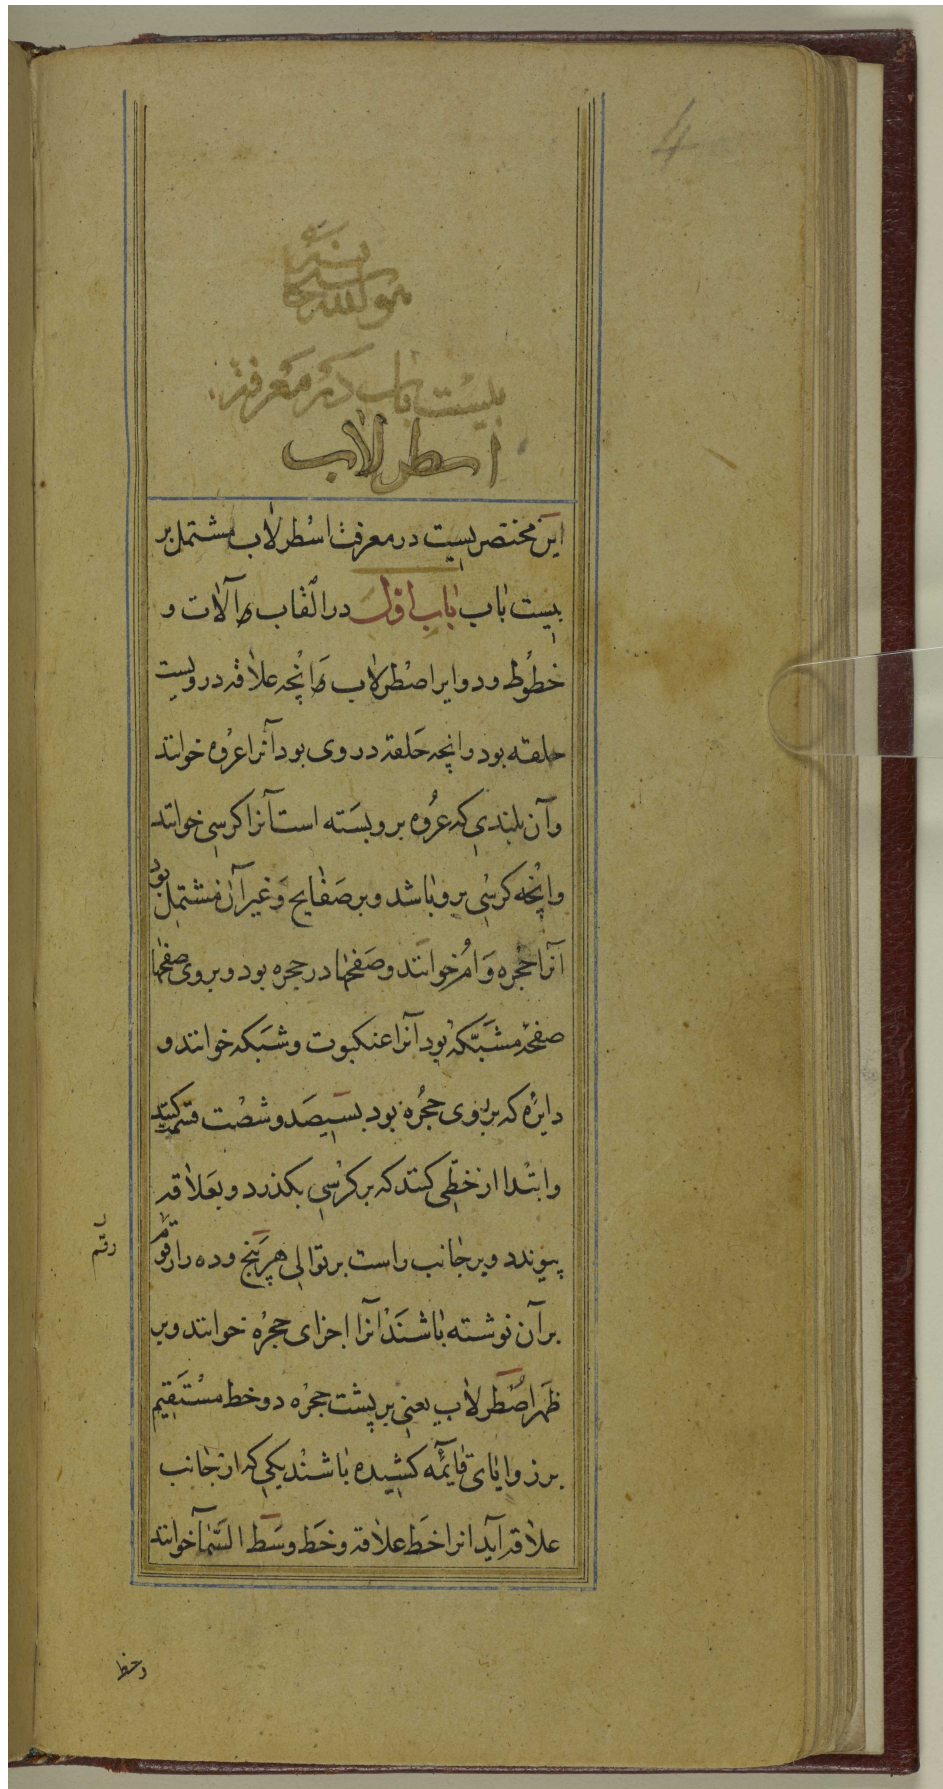 4
هو الله سبحانه
بیست باب در معرفت
اسطرلاب
این مختصریست در معرفت اسطرلاب مشتمل بر
بیست باب باب اول در القاب آلات و
خطوط و دوایر اصطرلاب انچه علاقه در ویست
حلقه بود وانچه حلقه در وی بود آنرا عروه خوانند
وآن بلندی که عروه بر وبسته است آنرا کرسی خوانند
وانچه کرسی بر وباشد وبر صفایح وغیر آن مشتمل بود
آنرا حجره وام خوانند وصفحها در حجره بود وبروی صفحها
صفحه مشبکه بود آنرا عنکبوت وشبکه خوانند و
دایره که بر روی حجره بود بسیصد وشصت قسم کنند
وابتدا از خطی کنند که بر کرسی بکذرد وبعلاقه
پیوندد وبر جانب راست بر توالی هر پنج وده را رقوم
رقم
بر آن نوشته باشند آنرا اجزای حجره خوانند وبر
ظهر اصطرلاب یعنی بر پشت حجره دو خط مستقیم
بر زوایای قایمه کشیده باشند یکی که از جانب
علاقه آید انرا خط علاقه وخط وسط السمآ خوانند
وخط